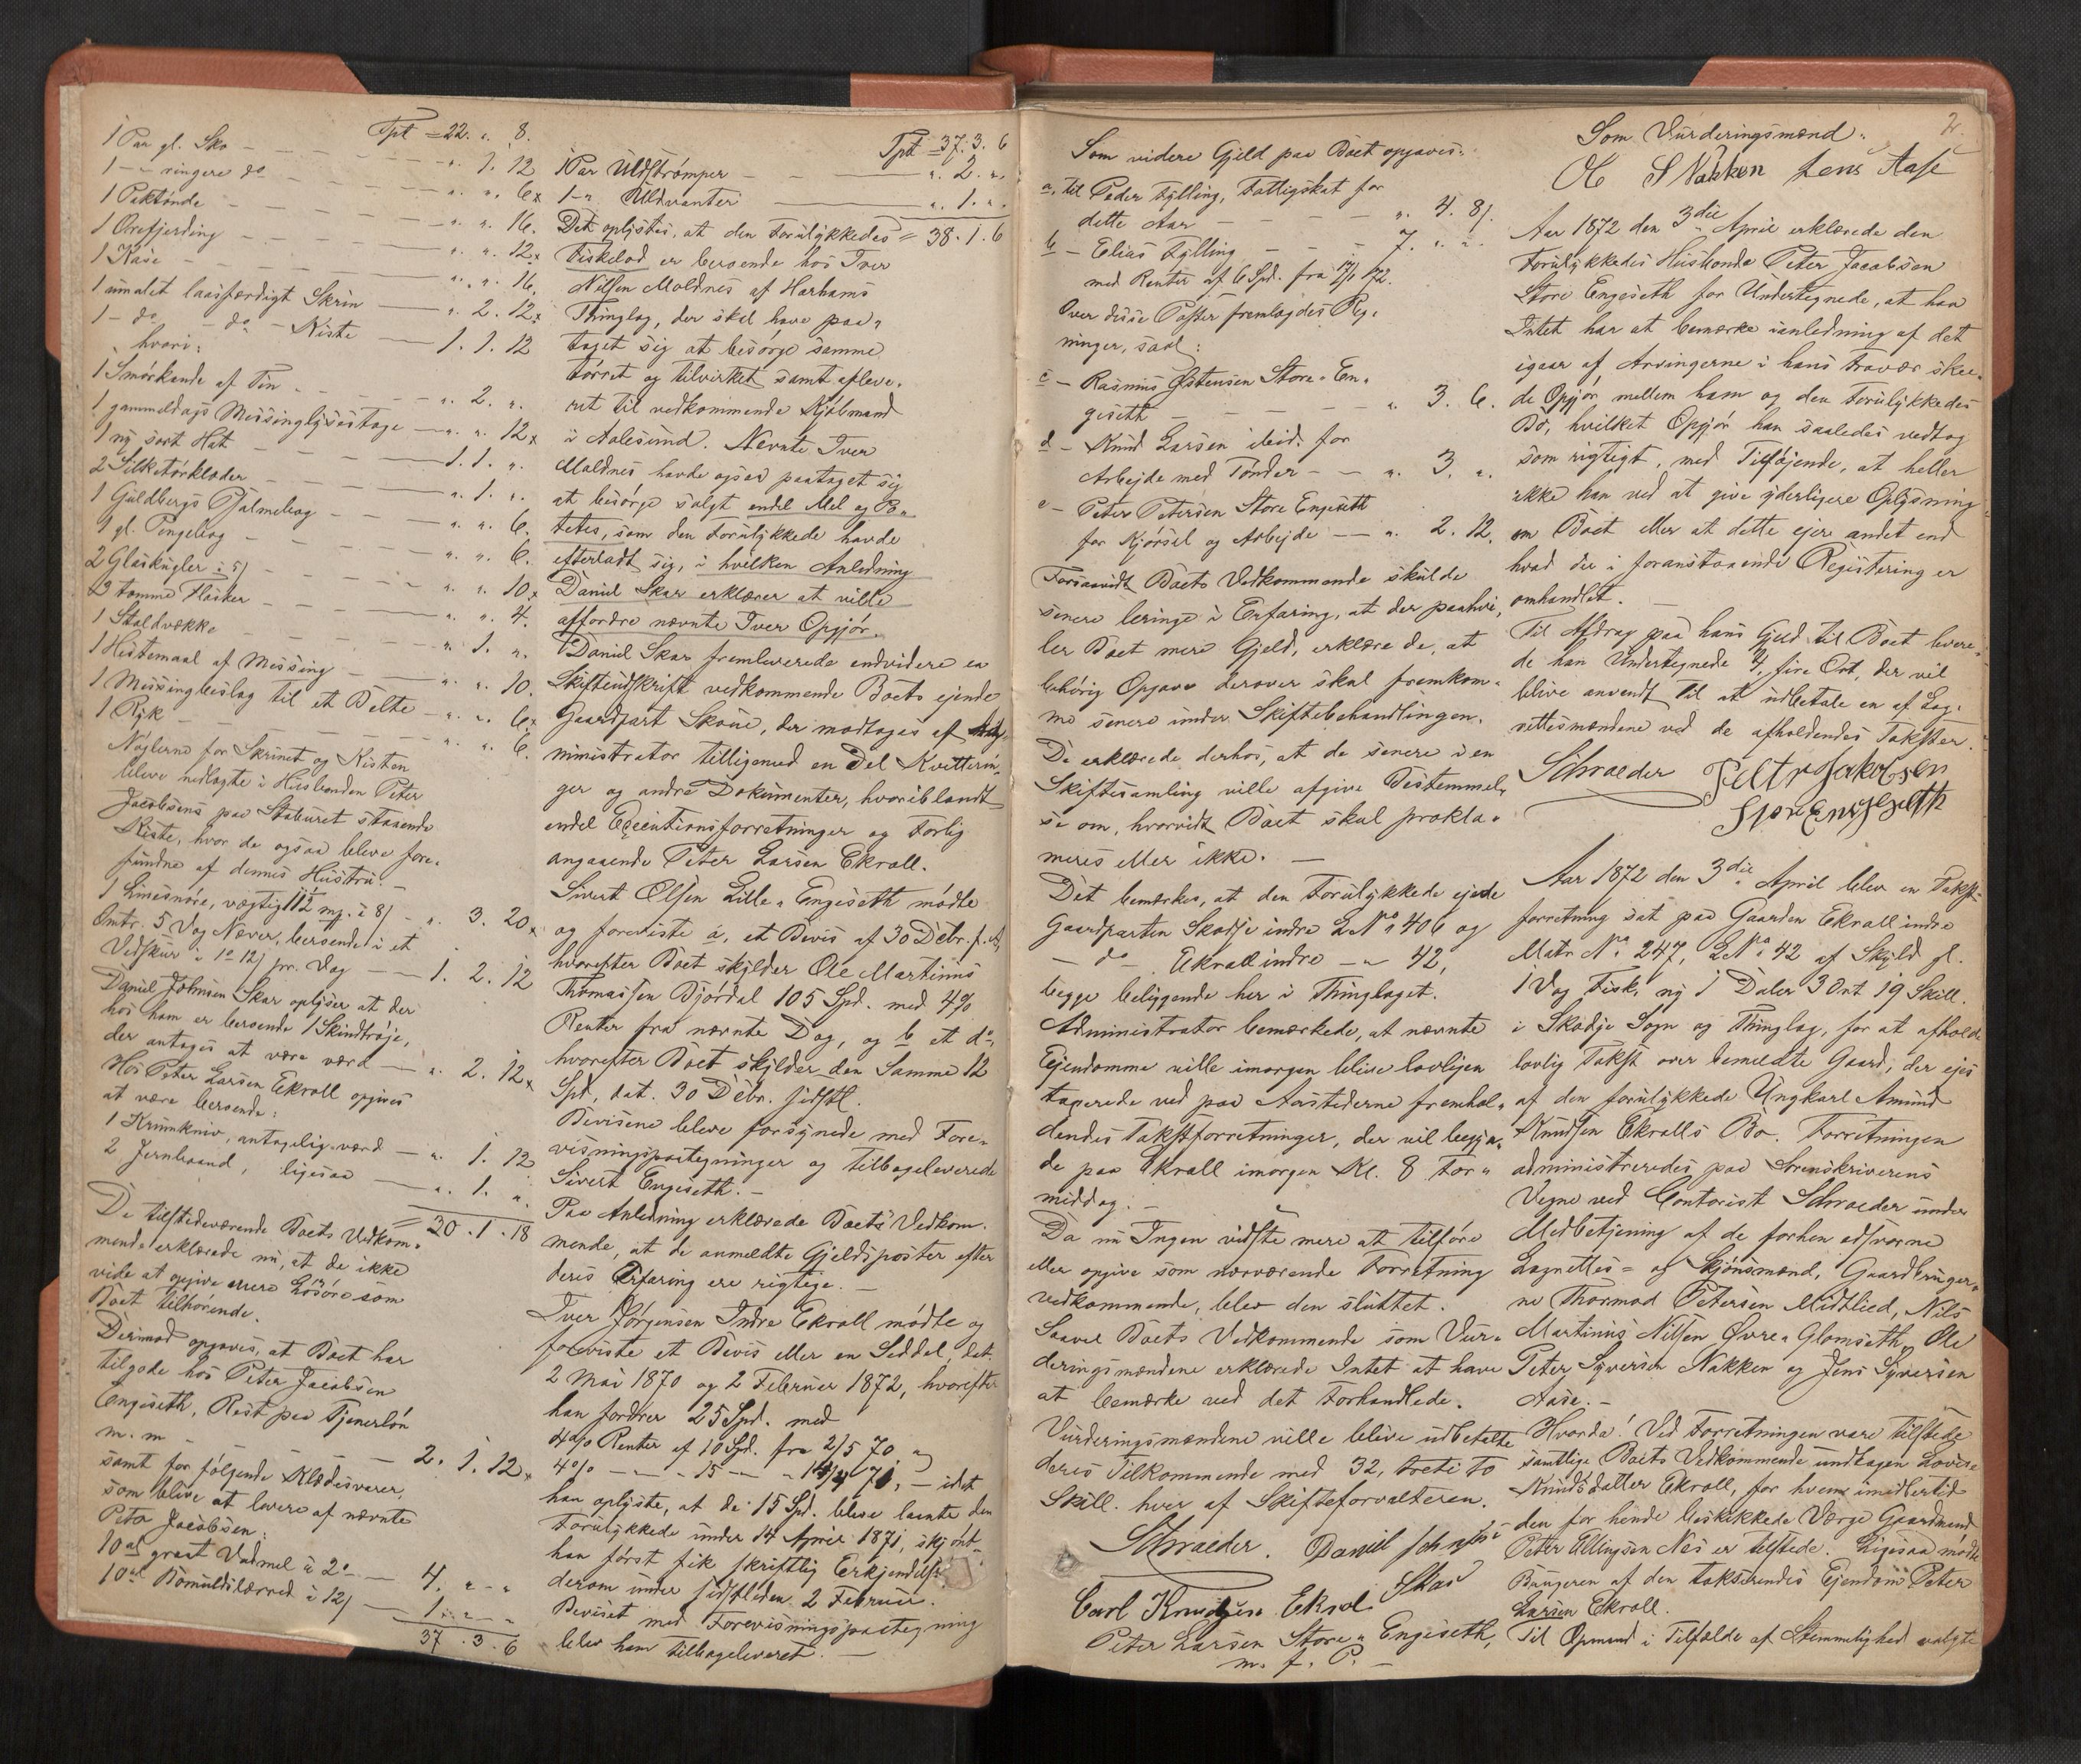 Tpt = 22. " 8.
1 Par gl. Sko — " 1. 12
1 — " ringere do — " " 6x
1 Paktønde — " " 16.
1 Ørefjerding — " " 12x
1 Kase — " " 16.
1 umalet laasfærdigt Skrin — " 2. 12x
1 — do — do — Kiste — 1. 1. 12
hvori:
1 Smørkande af Tin — " 2. "
1 gammeldags Messinglysestage — " " 12x
1 ny sort Hat — 1. 1. "
2 Silketørklæder — " 1. "
1 Guldbergs Psalmebog — " " 6.
1 gl. Pengebog — " " 6.
2 Glaskugler à 5/ — " " 10x
3 tomme Flasker — " " 4.
1 Staldvække — " 1. "
1 Hestemaal af Messing — " " 10.
1 Messingbeslag til et Belte — " " 6x
1 Rýk — " " 6.
Nøglerne for Skrinet og Kisten
bleve nedlagte i Husbonden Peter
Jacobsens paa Staburet staaende
Kiste, hvor de ogsaa bleve fore-
fundne af dennes Hustru. —
1 Linesnøre, vægtig 11½ mg. à 8/ — " 3. 20x
Omtr. 5 Vog Næver, beroende i et
Vedskur à 1 o 12/ pr. Vog — 1. 2. 12
Daniel Johnsen Skar oplyser at der
hos ham er beroende 1 Skindtrøje,
der antages at være værd — " 2. 12x
Hos Peter Larsen Ekroll opgives
at være beroende:
1 Krumkniv, antagelig værd — " 1. 12
2 Jernbaand, ligesaa — " 1. "
= 30. 1. 18
De tilstedeværende Boets Vedkom-
mende erklærede nu, at de ikke
vide at opgive mere Løsøre som
Boet tilhørende.
Derimod opgaves, at Boet har
tilgode hos Peter Jacobsen
Engeseth, Rest paa Tjenerløn
m. m — 2. 1. 12x
samt for følgende Klædesvarer,
som bleve at levere af nævnte
Peter Jacobsen:
10 al graat Vadmel à 2 o — 4. " "
10 al Bomuldslærred à 12/ — 1. " "
37. 3. 6
Tpt = 37. 3. 6
1 Par Uldstrømper — " 2. "
1 — " Uldvanter — " 1. "
Det oplystes, at den Forulykkedes = 38. 1. 6
Fiskelod er beroende hos Iver
Nilsen Moldnes af Harhams
Thinglag, der skal have paa-
taget sig at besørge samme
tørret og tilvirket samt afleve-
ret til vedkommende Kjøbmand
i Aalesund. Nævnte Iver
Moldnes havde ogsaa paataget sig
at besørge solgt endel Mel og Po-
tetes, som den Forulykkede havde
efterladt sig, i hvilken Anledning
Daniel Skar erklærer at ville
affordre nævnte Iver Opgjør.
Daniel Skar fremleverede endvidere en
Skifteudskrift vedkommende Boets ejende
Gaardpart Skoue, der modtoges af Ad-
ministrator tilligemed en Del Kvitterin-
ger og andre Dokumenter, hvoriblandt
endel Executionsforretninger og Forlig
angaaende Peter Larsen Ekroll.
Sivert Olsen Lille-Engeseth mødte
og foreviste a, et Bevis af 30 Debr. f. A,
hvorefter Boet skylder Ole Martinus
Thomassen Bjørdal 105 Spd. med 4%
Renter fra nævnte Dag, og b et do,
hvorefter Boet skylder den Samme 12
Spd, dat. 30 Debr. sidstl.
Beviserne bleve forsynede med Fore-
visningspaategninger og tilbageleverede
Sivert Engeseth. —
Paa Anledning erklærede Boets Vedkom-
mende, at de anmeldte Gjeldsposter efter
deres Erfaring ere rigtige. —
Iver Jørgensen Indre Ekroll mødte og
foreviste et Bevis eller en Seddel, dat.
2 Mai 1870 og 2 Februar 1872, hvorefter
han fordrer 25 Spd. med
4% Renter af 10 Spd. fra 2/5 70. og
4% — " — 15 — " — 14/4 71, — idet
han oplyste, at de 15 Spd. bleve laante den
Forulykkede under 14 April 1871, skjønt
han først fik skriftlig Erkjendelse
derom under sidstleden 2 Februar.
Beviset med Forevisningspaategning
blev ham tilbageleveret. —
Som videre Gjeld paa Boet opgaves:
a, til Peder Fylling, Fattigskat for
dette Aar — " 4. 8/.
b — Elias Fylling — 7. " "
med Renter af 6 Spd. fra 17/1 72.
Over disse Poster fremlagdes Reg-
ninger, saal:
c — Rasmus Østensen Store-En-
geseth — " 3. 6.
d — Knud Larsen ibid. for
Arbejde med Tønder — " 3. "
e — Peter Petersen Store Engeseth
for Kjørsel og Arbejde — " 2. 12.
Forsaavidt Boets Vedkommende skulde
senere bringe i Erfaring, at der paahvi-
ler Boet mere Gjeld, erklære de, at
behørig Opgave derover skal fremkom-
me senere under Skiftebehandlingen.
De erklærede derhos, at de senere i en
Skiftesamling ville afgive Bestemmel-
se om, hvorvidt Boet skal prokla-
meres eller ikke. —
Det bemærkes, at den Forulykkede ejede
Gaardparten Skodje indre L No 406 og
— do — Ekroll indre — " 42,
begge beliggende her i Thinglaget.
Administrator bemærkede, at nævnte
Ejendomme ville imorgen blive lovligen
taxerede ved paa Aastederne fremhol-
dendes Takstforretninger, der vil begyn-
de paa Ekroll imorgen Kl. 8 For-
middag. —
Da nu Ingen vidste mere at tilføre
eller opgive som nærværende Forretning
vedkommende, blev den sluttet.
Saavel Boets Vedkommende som Vur-
deringsmændene erklærede Intet at have
at bemærke ved det Forhandlede.
Vurderingsmændene ville blive udbetalte
deres Tilkommende med 32, treti to
Skill. hver af Skifteforvalteren.
Schroeder. Daniel Johnsen
Skar
Carl Knudsen Ekrol
Peter Larsen Store-Engeseth,
m. f. P. —
2.
Som Vurderingsmænd:
Ole S Nakken Jens Aase
Aar 1872 den 3die April erklærede den
Forulykkedes Husbonde Peter Jacobsen
Store Engeseth for Undertegnede, at han
Intet har at bemærke ianledning af det
igaar af Arvingerne i hans Fravær skee-
de Opgjør mellem ham og den Forulykkedes
Bo, hvilket Opgjør han saaledes vedtog
som rigtigt, med Tilføjende, at heller
ikke han ved at give yderligere Oplysning
om Boet eller at dette ejer andet end
hvad der i foranstaaende Registering er
omhandlet. —
Til Afdrag paa hans Gjeld til Boet levere-
de han Undertegnede 4, fire Ort, der vil
blive anvendt til at udbetale en af Lag-
rettesmændene ved de afholdendes Takster.
Schroeder Petter Jakobsen
Stor Engeseth
Aar 1872 den 3die April blev en Takst-
forretning sat paa Gaarden Ekroll indre
Matr No 247, L No 42 af Skyld gl.
1 Vog Fisk, ny 1 Daler 3 Ort 19 Skill.
i Skodje Sogn og Thinglag, for at afholde
lovlig Takst over bemeldte Gaard, der ejes
af den forulykkede Ungkarl Amund
Knudsen Ekrolls Bo. Forretningen
administreredes paa Sorenskriverens
Vegne ved Contorist Schroeder under
Medbetjening af de forhen edsvorne
Lagrettes- og Skjønsmænd, Gaardbruger-
ne Thormod Petersen Midtlied, Nils
Martinus Nilsen Øvre-Glomseth, Ole
Peter Syversen Nakken og Jens Syversen
Aase. —
Hvorda! Ved Forretningen vare tilstede
samtlige Boets Vedkommende undtagen Lovise
Knudsdatter Ekroll, for hvem imidlertid
den for hende beskikkede Værge Gaardmand
Peter Ellingsen Næs er tilstede. Ligesaa mødte
Brugeren af den takserendes Ejendom Peter
Larsen Ekroll.
Til Opmand i Tilfælde af Stemmelighed valgte